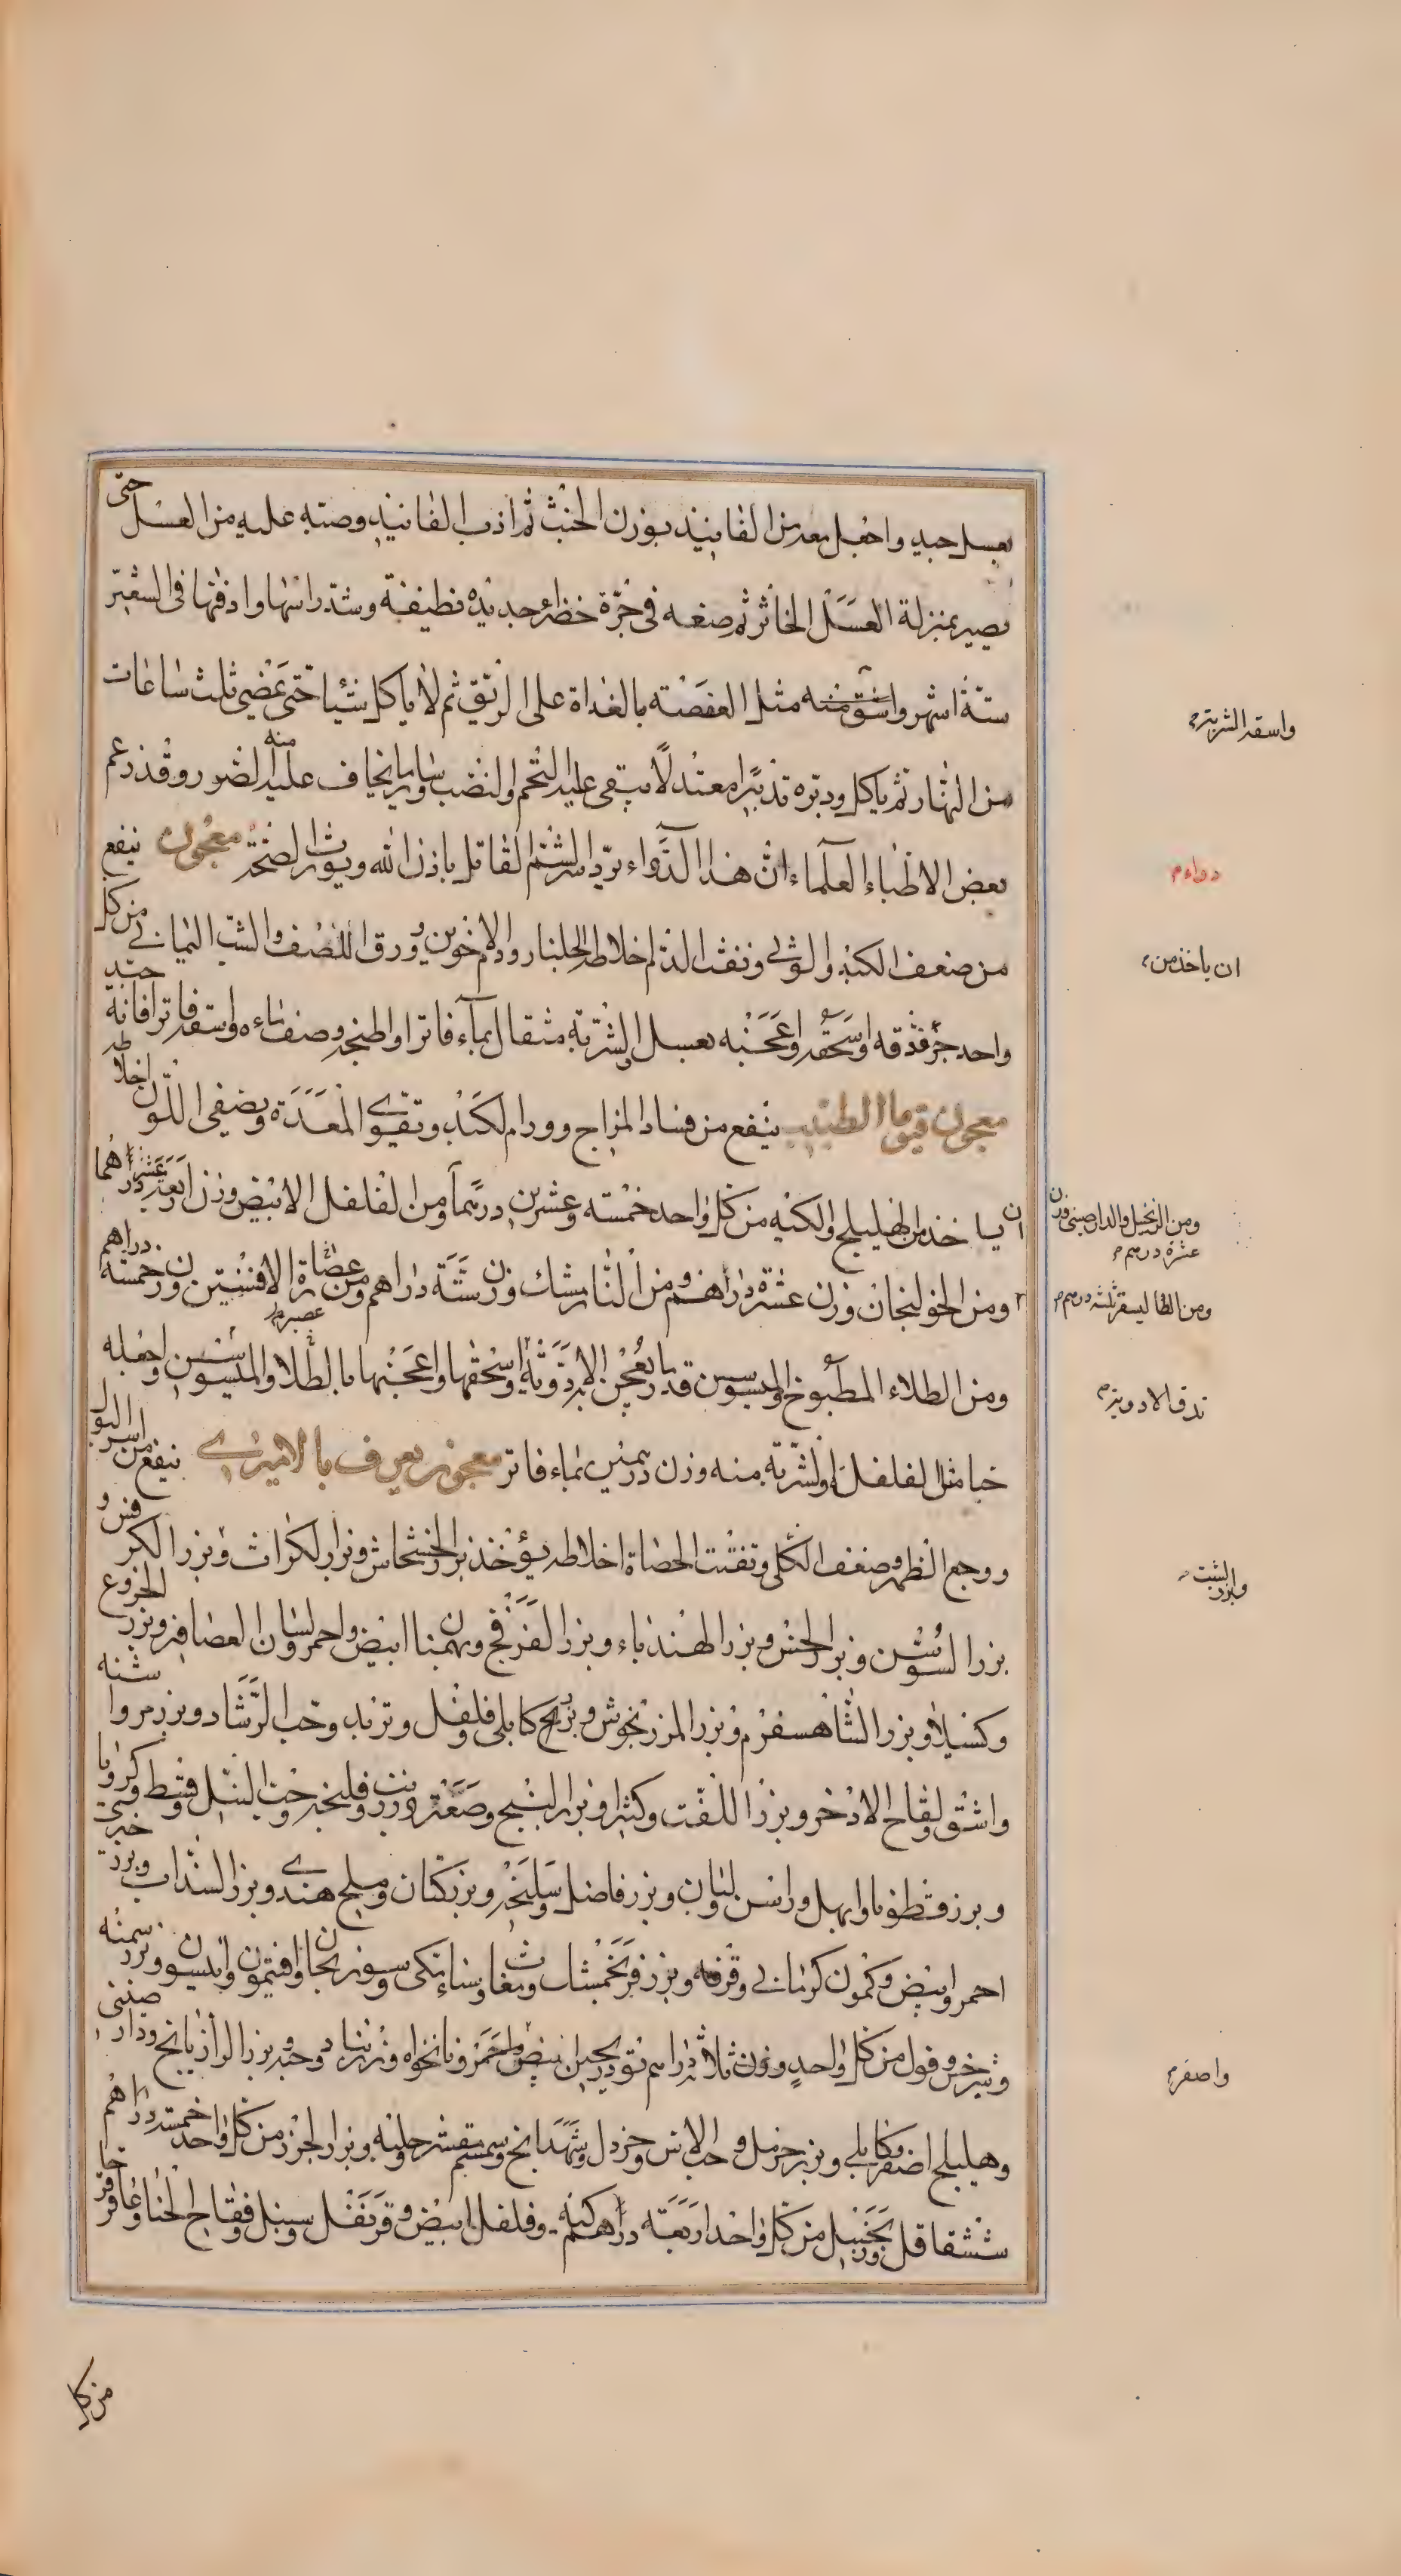 بعسل جيد واجعل معه من الفانيد بوزن الخبث ثم اذب الفانيد وصبه عليه من العسل حتى
يصير بمنزلة العسل الخاثر ثم صفه فى جرة خضراء جديده نظيفة وشد راسها وادفنها فى الشعير
ستة اشهر واسق منه مثل العفصة بالغداة على الريق ثم لا ياكل شيئا حتى يمضي ثلث ساعات
من النهار ثم ياكل ودبره تدبيرا معتدلا يتقى عليه التخم والنصب وساير ما يخاف عليه منه الضرر وقد زعم
بعض الاطباء العلماء ان هذا الدواء يرد السم القاتل باذن الله ويورث الصحة معجون ينفع
من ضعف الكبد والوثى ونفث الدم اخلاطه الجلنار ودم الاخوين وورق اللصف والشب اليمانى من كل
واحد جزء فدقه واسحقه واعجنه بعسل والشربة مثقال بماء فاتر او اطبخه وصف ماءه واسقه فاترا فانه جيد
معجون قيوما الطبيب ينفع من فساد المزاج وورم الكبد وتقوى المعدة ويصفى اللون اخلاطه
ان ياخذ من الهليلج والكيه من كل واحد خمسة وعشرين درهما ومن الفلفل الابيض وزن اربعة عشر درهما
ومن الخولنجان وزن عشرة دراهم ومن النارمشك وزن ستة دراهم ومن عصارة الافسنتين وزن خمسة دراهم
ومن الطلاء المطبوخ والميسوسن قدر ما يعجن الادوية واسحقها واعجنها بالطلا والميسوسن واجعله
حبا مثل الفلفل والشربة منه وزن درهمين بماء فاتر معجون يعرف بالاميرى ينفع من اسر البول
ووجع الظهر وضعف الكلى وتفتت الحصاة اخلاطه يؤخذ بزر الخشخاش وبزر الكراث وبزر الكرفس و
بزر السوسن وبزر الخس وبزر الهندباء وبزر الفرفخ وبهمنا ابيض واحمر ولسان العصافير وبزر الخروع
وكسيلا وبزر الشاهسفرم وبزر المرزنجوش وبرنج كابلى وفلفل وتربد وحب الرشاد وبزر مروا شنه
واشق وفقاح الاذخر وبزر اللفت وكثيرا وبزر البنج وصعتر وزرنب وفلنجه وحب النيل وقسط وكرويا
وبزر قطونا وابهل وراسن ولبان وبزر فاضل وسليخه وبزر كتان وملح هندى وبزر السذاب وبزر خيرى
احمر وابيض وكمون كرمانى وقرفه وبزر فرنجمشك ومغاث وسناء مكى وسورنجان وافتيمون وانيسون وبزر سمنه
وشيرخس وفول من كل واحد وزن ثلاثة دراهم تودريجين ابيض واحمر ونانخواه وزرنباد وجوز وبزر الرازيانج ودار صينى
وهليلج اصفر وكابلى وبزر حرمل وحب الاس وخردل وشهدانج وسمسم مقشر وحلبه وبزر الجزر من كل واحد خمسة دراهم
ششقاقل وزنجبيل من كل واحد اربعة دراهم كيه وفلفل ابيض وقرنفل وسنبل وفقاح الحنا وعاقرقرحا
من كل
واسقه الشربة
دواء
ان ياخذ من
ومن الزنجبيل والدارصينى وزن
عشرة درهم
ومن الطاليسفر ثلثه درهم
تدق الادوية
وبزر الشبت
واصفر